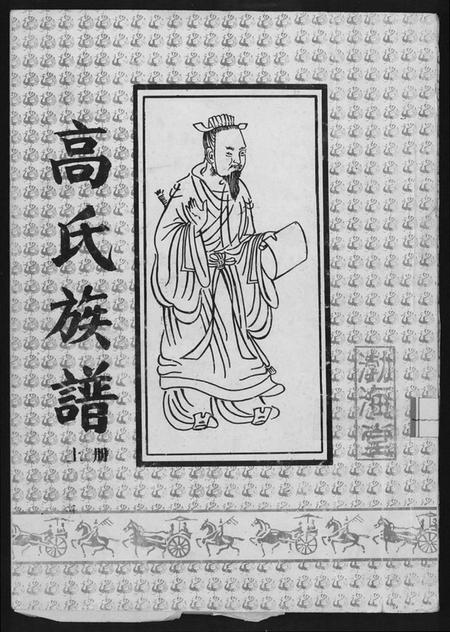 高氏族譜
上册
渤海堂